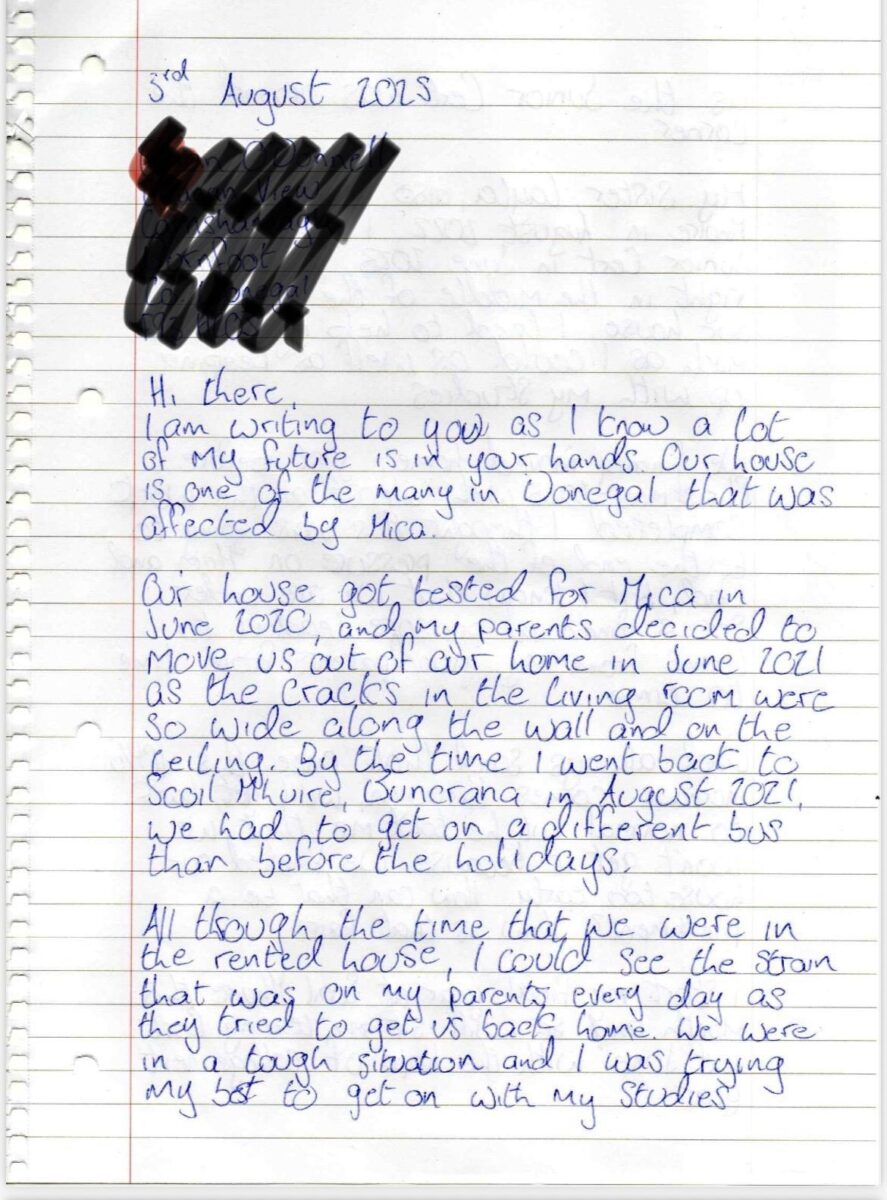 3rd August 2025
Hi there,
I am writing to you as I know a lot
of my future is in your hands. Our house
is one of the many in Donegal that was
affected by Mica.
Our house got tested for Mica in
June 2020, and my parents decided to
move us out of our home in June 2021
as the cracks in the living room were
so wide along the wall and on the
ceiling. By the time I went back to
Scoil Mhuire, Buncrana in August 2021,
we had to get on a different bus
than before the holidays.
All through the time that we were in
the rented house, I could see the strain
that was on my parents every day as
they tried to get us back home. We were
in a tough situation and I was trying
my best to get on with my studies